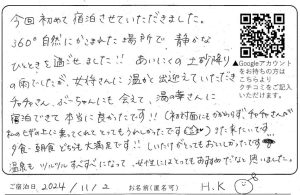 今回初めて宿泊させていただきました。
360°自然にかこまれた場所で、静かな
ひとときを過ごせました!! あいにくの土砂降り
の雨でしたが、女将さんに温かく出迎えていただき
チャチャさん、ぶーちゃんにも会えて、湯の華さんに
宿泊できて本当に良かったです!! (初対面にもかかわらず、チャチャさんが
私のヒザの上に乗ってくれてとってもうれしかったです) また来たいです!!
夕食・朝食どちらも大満足です!! しいたけがとってもおいしかったです
温泉もツルツルすべすべになって、女性にはとってもおすすめだなと思いました。
▲Googleアカウント
をお持ちの方は
こちらより
クチコミをご記入
いただけます。
ご宿泊日 2024 / 11 / 2 お名前(匿名可) H.K